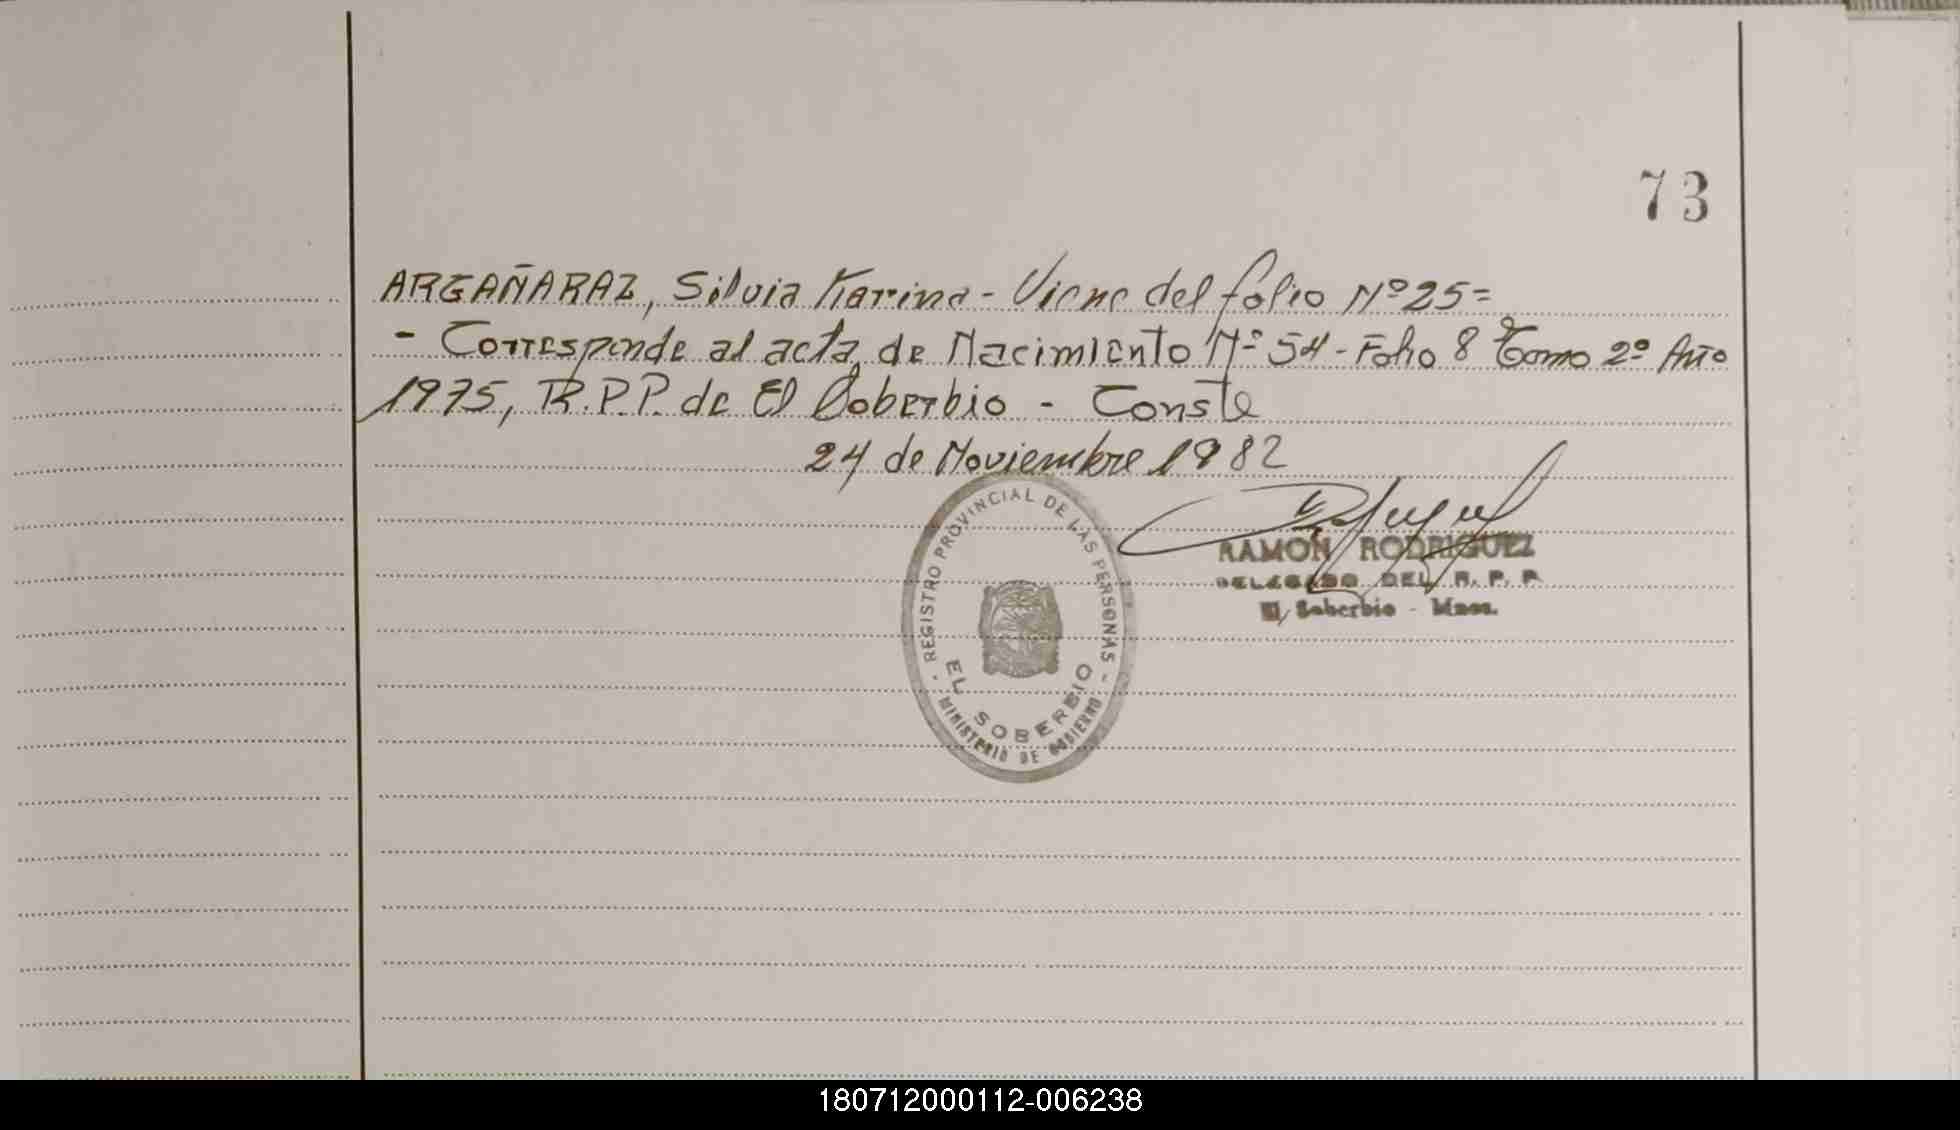 73
ARGAÑARAZ, Silvia Karina - Viene del folio Nº 25=
- Corresponde al acta de Nacimiento Nº 54 - Folio 8 Tomo 2º Año
1975, R.P.P. de El Soberbio - Conste
24 de Noviembre 1982
REGISTRO PROVINCIAL DE LAS PERSONAS
EL SOBERBIO
MINISTERIO DE GOBIERNO
RAMON RODRIGUEZ
DELEGADO DEL R. P. P.
El Soberbio - Mnes.
180712000112-006238